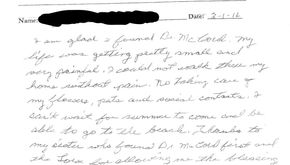 Name: Date: 3-1-16
I am glad I found Dr McCord. My
life was getting pretty small and
very painful. I could not walk thru my
home without pain. No taking care of
my flowers, pets and social contacts. I
can't wait for summer to come and be
able to go to the beach. Thanks to
my sister who found Dr McCord first and
the for allowing me the blessing